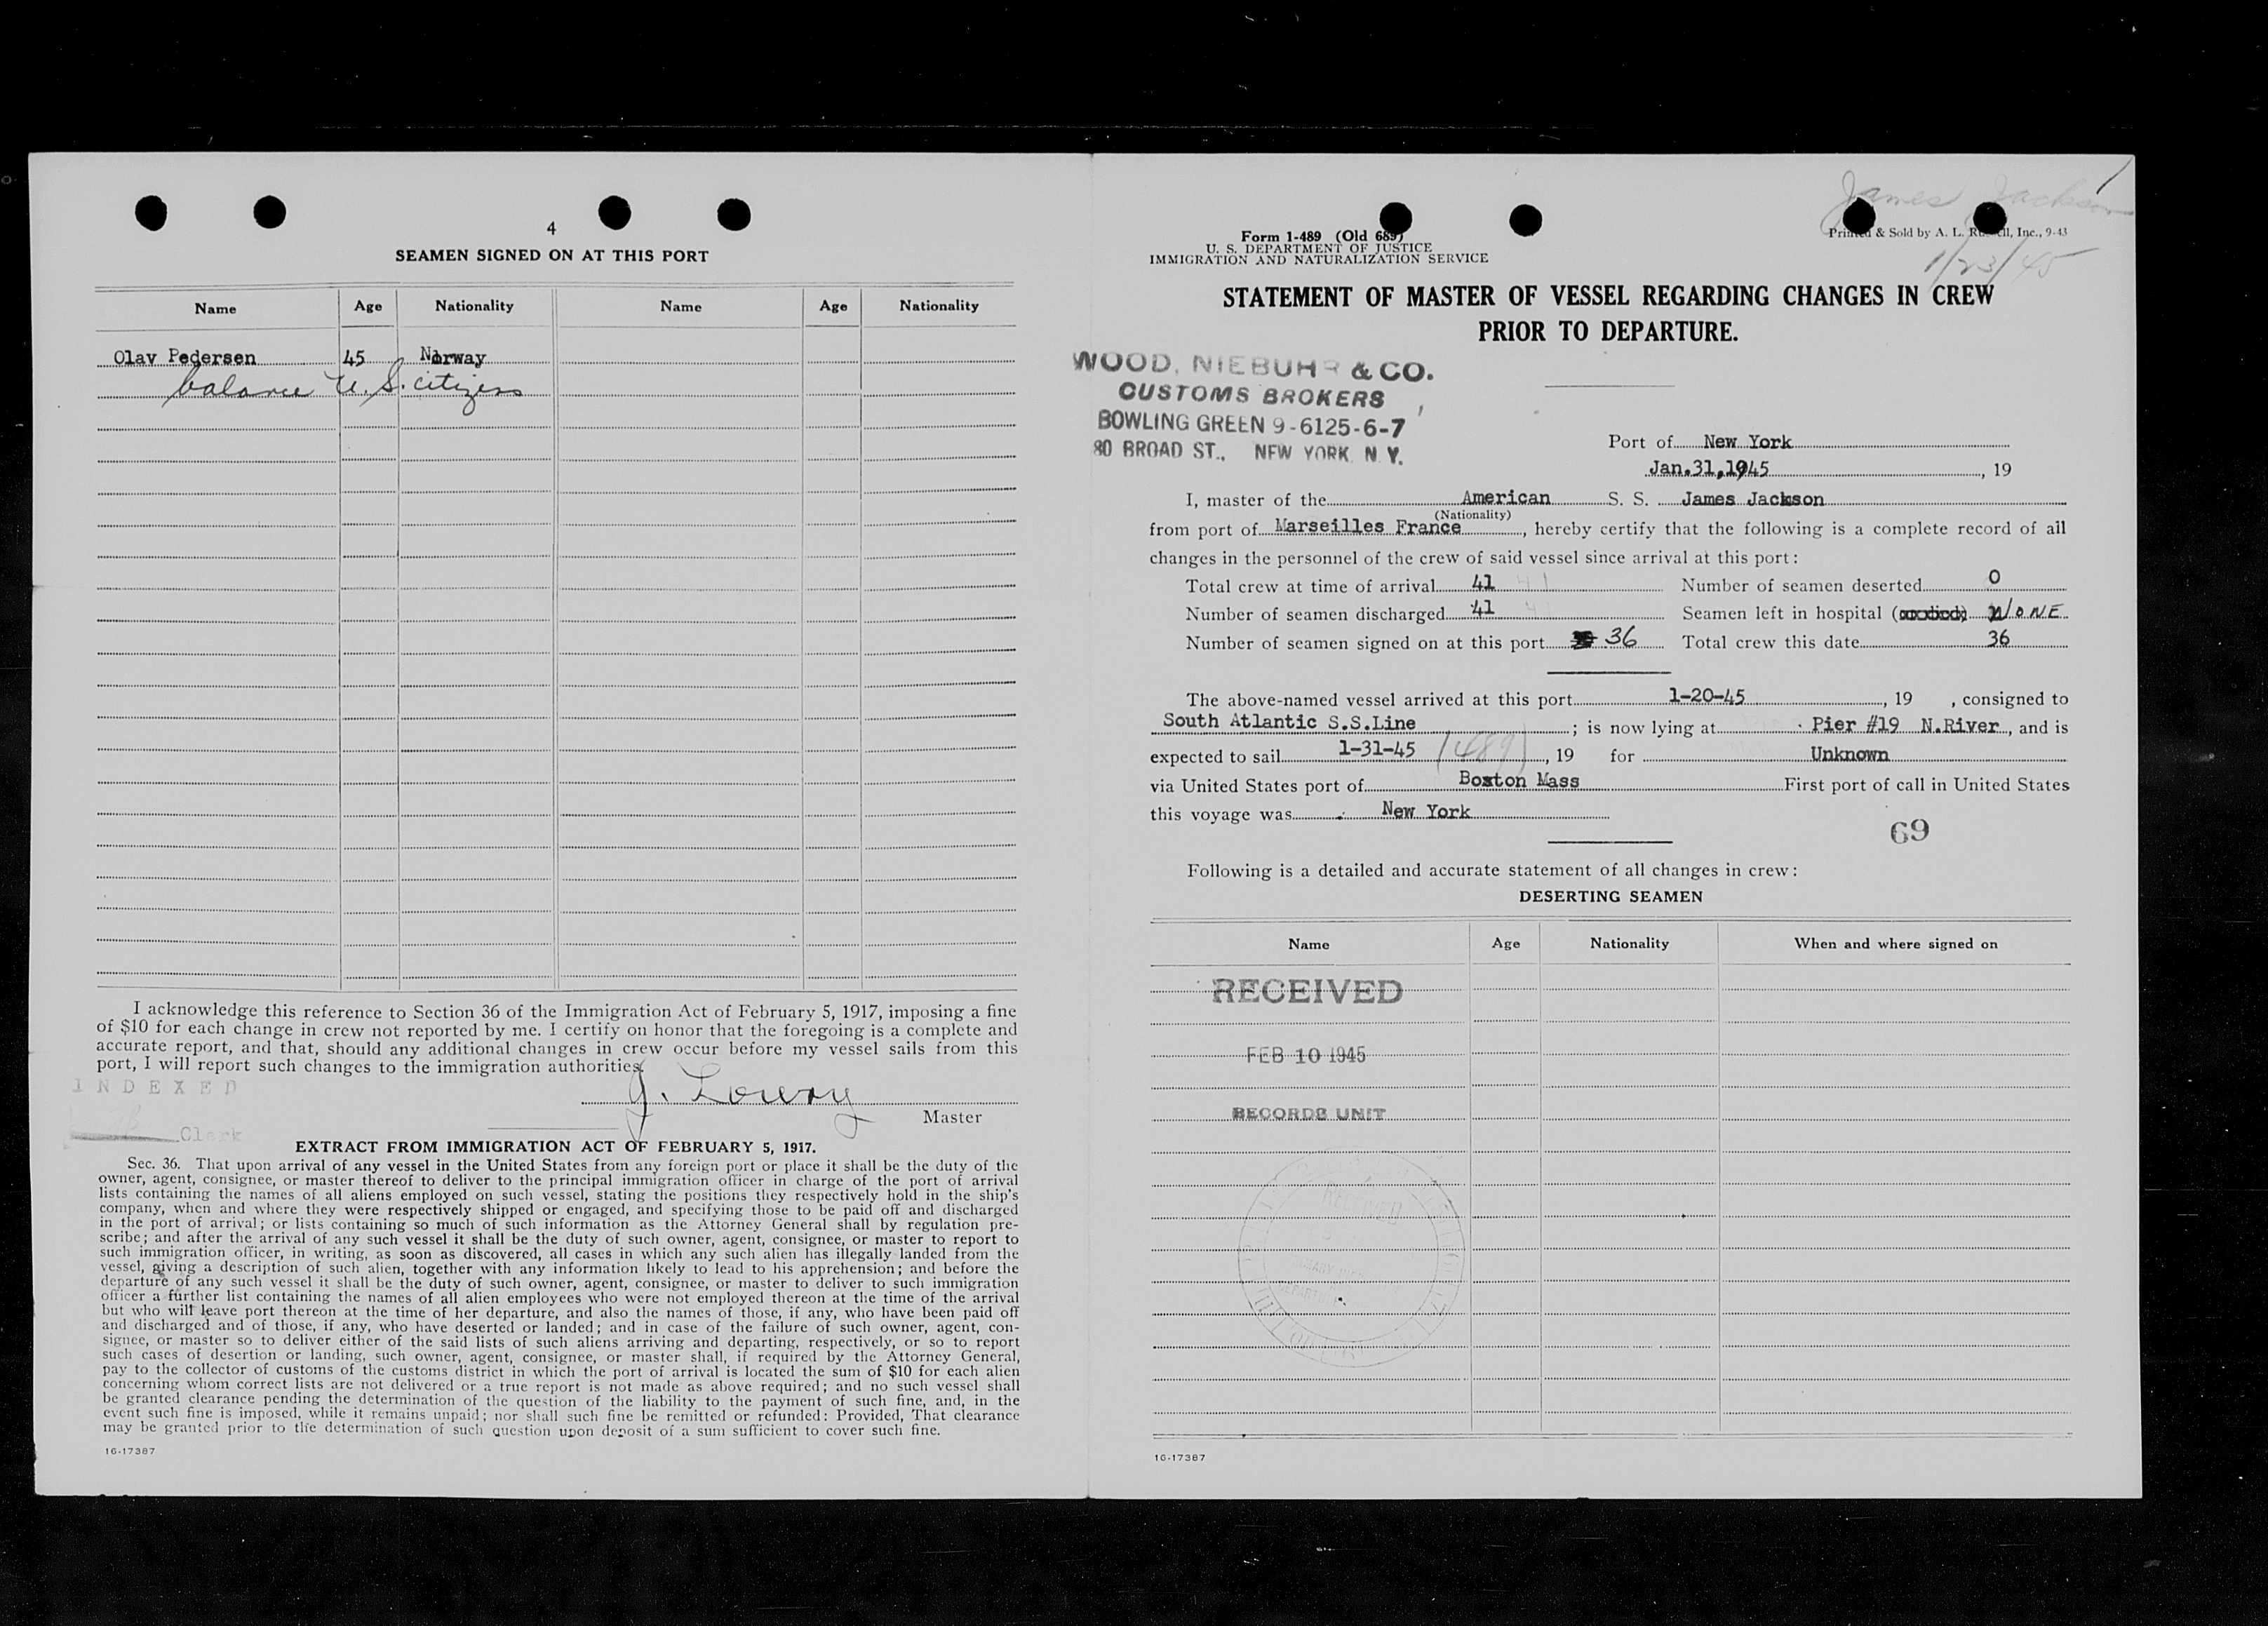 4
SEAMEN SIGNED ON AT THIS PORT
Name Age Nationality Name Age Nationality
Olav Pedersen 45 Norway
balance U.S. citizens
I acknowledge this reference to Section 36 of the Immigration Act of February 5, 1917, imposing a fine
of $10 for each change in crew not reported by me. I certify on honor that the foregoing is a complete and
accurate report, and that, should any additional changes in crew occur before my vessel sails from this
port, I will report such changes to the immigration authorities.
INDEXED
J. Lowry
Master
Clerk
EXTRACT FROM IMMIGRATION ACT OF FEBRUARY 5, 1917.
Sec. 36. That upon arrival of any vessel in the United States from any foreign port or place it shall be the duty of the
owner, agent, consignee, or master thereof to deliver to the principal immigration officer in charge of the port of arrival
lists containing the names of all aliens employed on such vessel, stating the positions they respectively hold in the ship's
company, when and where they were respectively shipped or engaged, and specifying those to be paid off and discharged
in the port of arrival; or lists containing so much of such information as the Attorney General shall by regulation pre-
scribe; and after the arrival of any such vessel it shall be the duty of such owner, agent, consignee, or master to report to
such immigration officer, in writing, as soon as discovered, all cases in which any such alien has illegally landed from the
vessel, giving a description of such alien, together with any information likely to lead to his apprehension; and before the
departure of any such vessel it shall be the duty of such owner, agent, consignee, or master to deliver to such immigration
officer a further list containing the names of all alien employees who were not employed thereon at the time of the arrival
but who will leave port thereon at the time of her departure, and also the names of those, if any, who have been paid off
and discharged and of those, if any, who have deserted or landed; and in case of the failure of such owner, agent, con-
signee, or master so to deliver either of the said lists of such aliens arriving and departing, respectively, or so to report
such cases of desertion or landing, such owner, agent, consignee, or master shall, if required by the Attorney General,
pay to the collector of customs of the customs district in which the port of arrival is located the sum of $10 for each alien
concerning whom correct lists are not delivered or a true report is not made as above required; and no such vessel shall
be granted clearance pending the determination of the question of the liability to the payment of such fine, and, in the
event such fine is imposed, while it remains unpaid; nor shall such fine be remitted or refunded: Provided, That clearance
may be granted prior to the determination of such question upon deposit of a sum sufficient to cover such fine.
16-17387
James Jackson
1/23/45
Form 1-489 (Old 689)
U. S. DEPARTMENT OF JUSTICE
IMMIGRATION AND NATURALIZATION SERVICE
Printed & Sold by A. L. Russell, Inc., 9-43
STATEMENT OF MASTER OF VESSEL REGARDING CHANGES IN CREW
PRIOR TO DEPARTURE.
WOOD, NIEBUHR & CO.
CUSTOMS BROKERS
BOWLING GREEN 9-6125-6-7
80 BROAD ST., NEW YORK, N. Y.
Port of New York
Jan.31,1945, 19
I, master of the American S. S. James Jackson
(Nationality)
from port of Marseilles France, hereby certify that the following is a complete record of all
changes in the personnel of the crew of said vessel since arrival at this port:
Total crew at time of arrival 41 41 Number of seamen deserted 0
Number of seamen discharged 41 Seamen left in hospital NONE
Number of seamen signed on at this port 36 Total crew this date 36
The above-named vessel arrived at this port 1-20-45, 19 , consigned to
South Atlantic S.S.Line; is now lying at Pier #19 N.River, and is
expected to sail 1-31-45 (489), 19 for Unknown
via United States port of Boston Mass First port of call in United States
this voyage was New York
69
Following is a detailed and accurate statement of all changes in crew:
DESERTING SEAMEN
Name Age Nationality When and where signed on
RECEIVED
FEB 10 1945
RECORDS UNIT
RECEIVED
16-17387